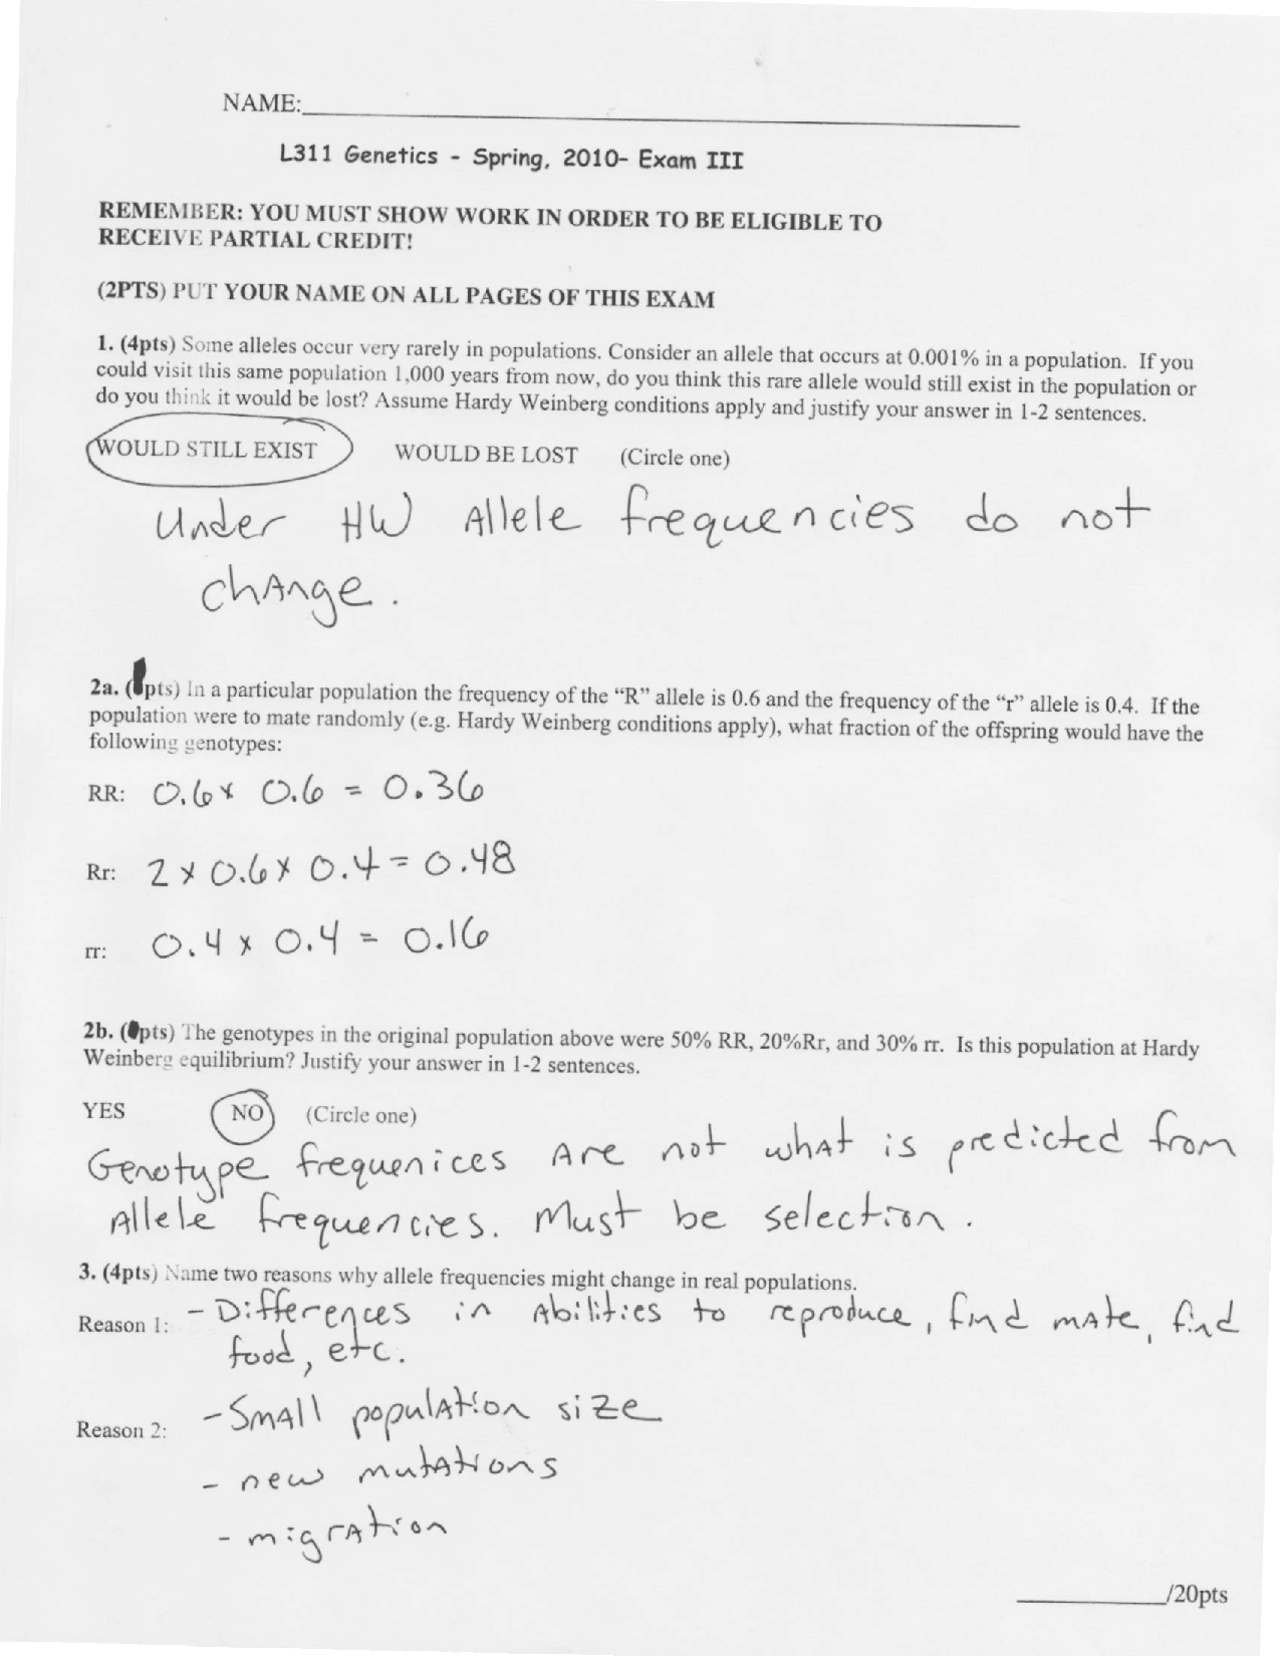 NAME:
L311 Genetics - Spring, 2010- Exam III
REMEMBER: YOU MUST SHOW WORK IN ORDER TO BE ELIGIBLE TO
RECEIVE PARTIAL CREDIT!
(2PTS) PUT YOUR NAME ON ALL PAGES OF THIS EXAM
1. (4pts) Some alleles occur very rarely in populations. Consider an allele that occurs at 0.001% in a population. If you
could visit this same population 1,000 years from now, do you think this rare allele would still exist in the population or
do you think it would be lost? Assume Hardy Weinberg conditions apply and justify your answer in 1-2 sentences.
WOULD STILL EXIST WOULD BE LOST (Circle one)
Under HW Allele frequencies do not
change.
2a. (pts) In a particular population the frequency of the “R” allele is 0.6 and the frequency of the “r” allele is 0.4. If the
population were to mate randomly (e.g. Hardy Weinberg conditions apply), what fraction of the offspring would have the
following genotypes:
RR: 0.6 x 0.6 = 0.36
Rr: 2 x 0.6 x 0.4 = 0.48
rr: 0.4 x 0.4 = 0.16
2b. (pts) The genotypes in the original population above were 50% RR, 20%Rr, and 30% rr. Is this population at Hardy
Weinberg equilibrium? Justify your answer in 1-2 sentences.
YES NO (Circle one)
Genotype frequenices Are not what is predicted from
Allele frequencies. Must be selection.
3. (4pts) Name two reasons why allele frequencies might change in real populations.
Reason 1: - Differences in Abilities to reproduce, find mate, find
food, etc.
Reason 2: - Small population size
- new mutations
- migration
/20pts